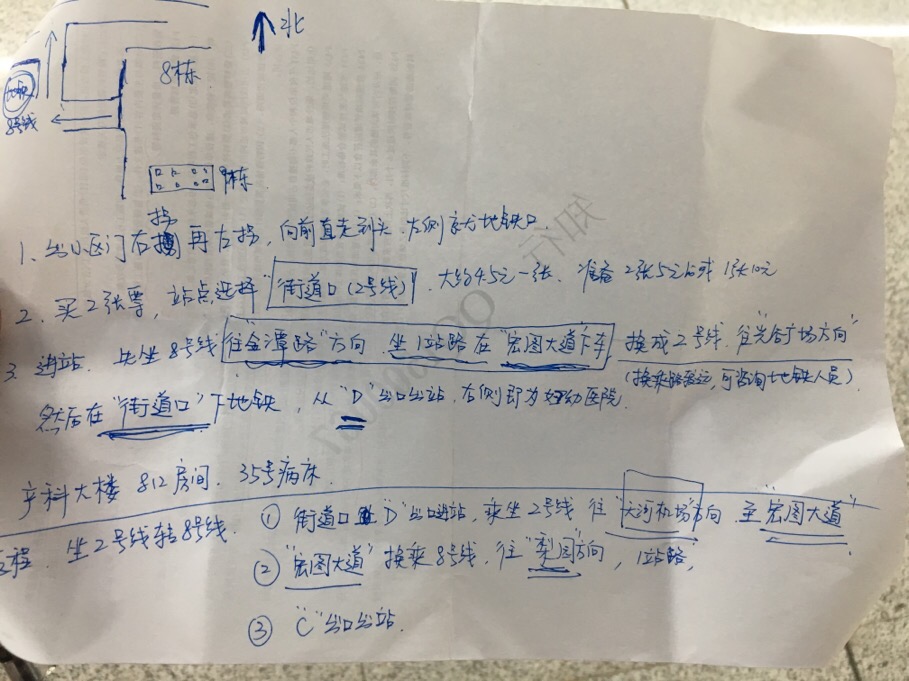 北
8栋
地铁
8号线
9栋
1、出小区门右拐再左拐，向前直走到头.左侧方为地铁口.
2、买2张票，站点选择"街道口(2号线)"，大约4.5元一张、准备2张5元的或1张10元
3、进站、先坐8号线"往"金潭路"方向.坐1站路在"宏图大道"下车，换成2号线.往"光谷广场方向"
(换乘路蛮远，可咨询地铁人员).
然后在"街道口"下地铁，从"D"出口出站，右侧即为妇幼医院.
产科大楼 812房间.35号病床.
返程、坐2号线转8号线.
① 街道口 "D"出口进站，乘坐2号线往"天河机场方向 至"宏图大道"
② "宏图大道"换乘8号线、往"梨园方向，1站路，
③ "C"出口出站.